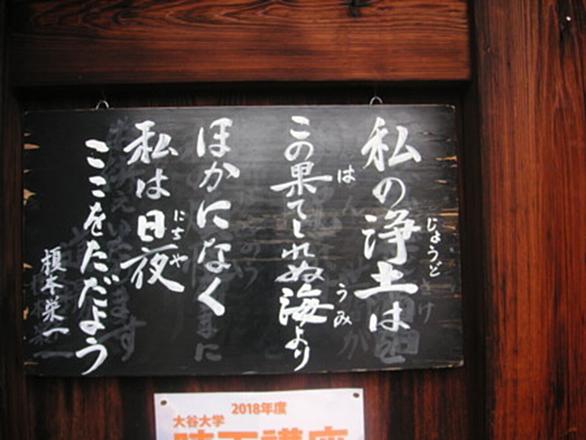 私の浄土は
この果てしれぬ海より
ほかになく
私は日夜
ここをただよう
榎本栄一
じょうど
は
うみ
にちや
2018年度
大谷大学